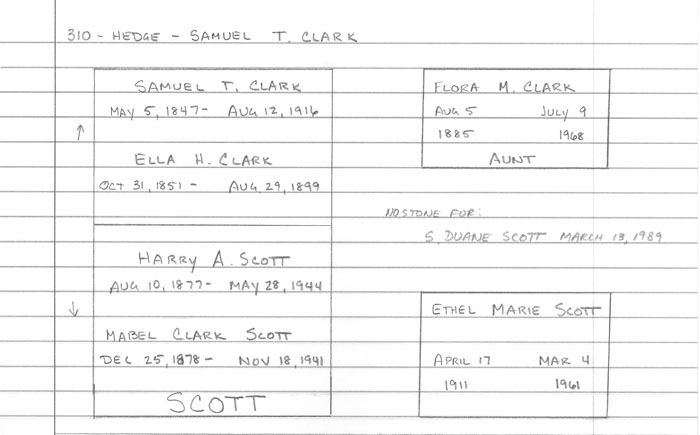 310 - HEDGE - SAMUEL T. CLARK
SAMUEL T. CLARK
MAY 5, 1847 - AUG 12, 1916
ELLA H. CLARK
OCT 31, 1851 - AUG 29, 1899
HARRY A. SCOTT
AUG 10, 1877 - MAY 28, 1944
MABEL CLARK SCOTT
DEC 25, 1878 - NOV 18, 1941
SCOTT
FLORA M. CLARK
AUG 5 JULY 9
1885 1968
AUNT
NO STONE FOR:
S. DUANE SCOTT MARCH 13, 1989
ETHEL MARIE SCOTT
APRIL 17 MAR 4
1911 1961